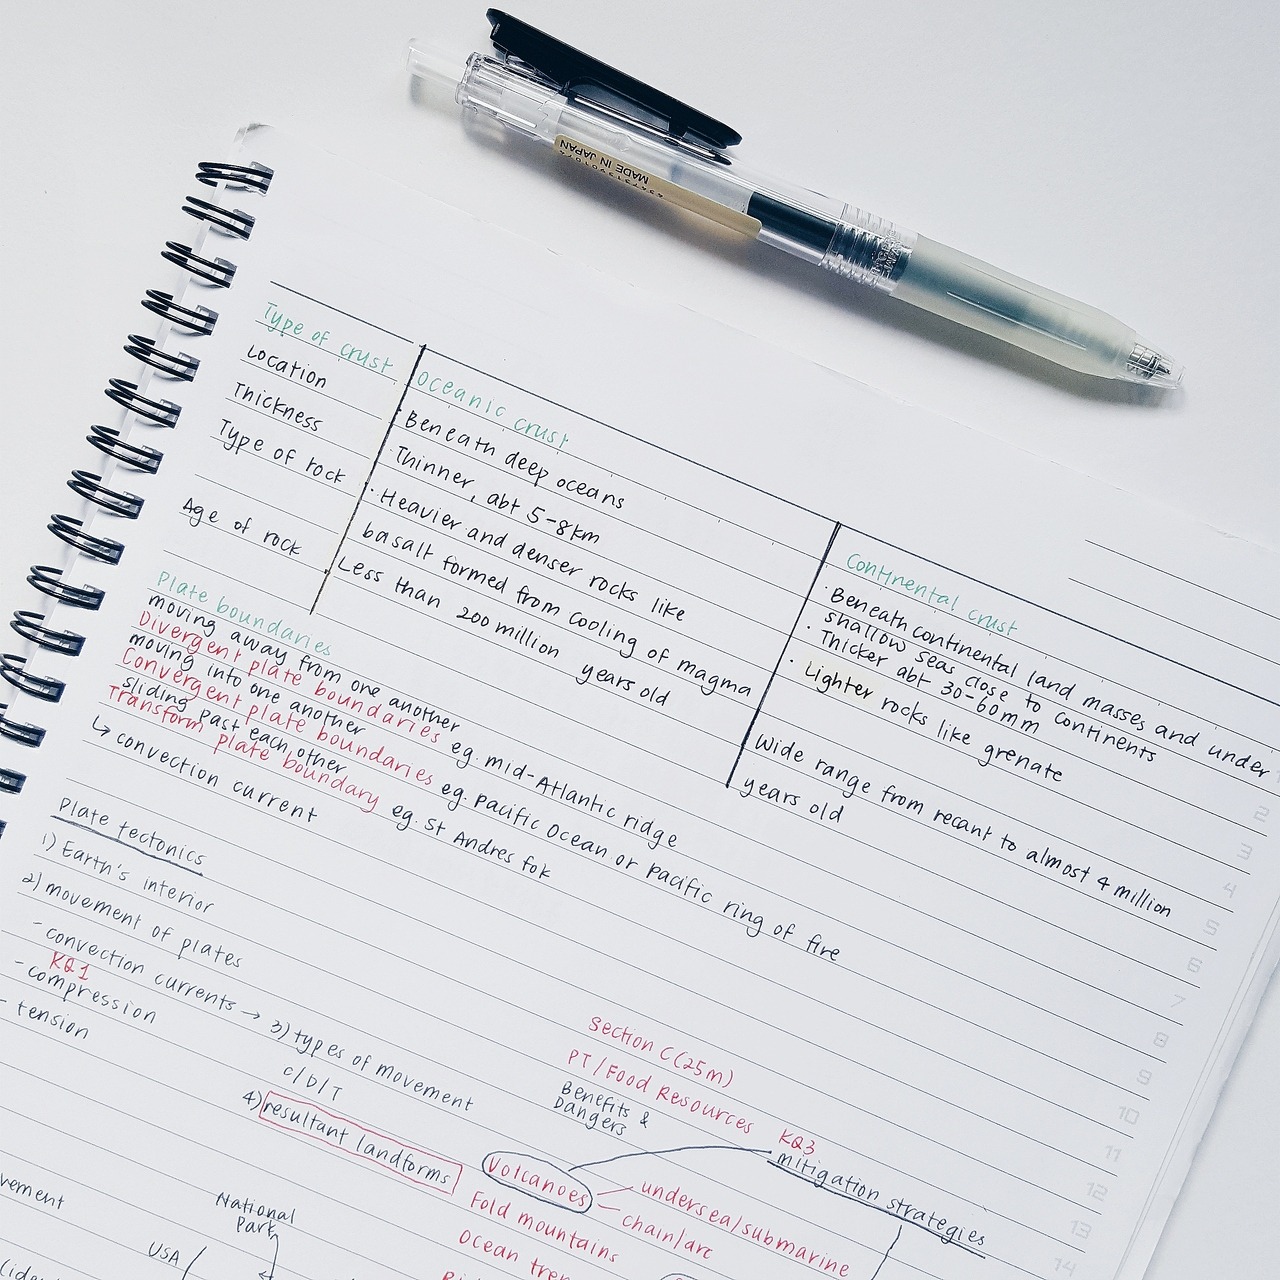 MADE IN JAPAN
Type of crust
Oceanic crust
Continental crust
Location
Beneath deep oceans
Beneath continental land masses and under
shallow seas close to continents
Thickness
Thinner, abt 5-8km
Thicker abt 30-60mm
Type of rock
Heavier and denser rocks like
basalt formed from cooling of magma
Lighter rocks like grenate
Age of rock
Less than 200 million years old
Wide range from recant to almost 4 million
years old
Plate boundaries
moving away from one another
Divergent plate boundaries eg. mid-Atlantic ridge
moving into one another
Convergent plate boundaries eg. Pacific Ocean or pacific ring of fire
sliding past each other
Transform plate boundary eg. St Andres fok
↳ convection current
Plate tectonics
1) Earth's interior
2) movement of plates
- convection currents → 3) types of movement
KQ1
- compression
- tension
C/D/T
4) resultant landforms
Section C (25m)
PT/Food Resources
Benefits &
Dangers
KQ3
mitigation strategies
Volcanoes
undersea/submarine
chain/arc
Fold mountains
Ocean
National
Park
USA
2
3
4
5
6
7
8
9
10
11
12
13
14